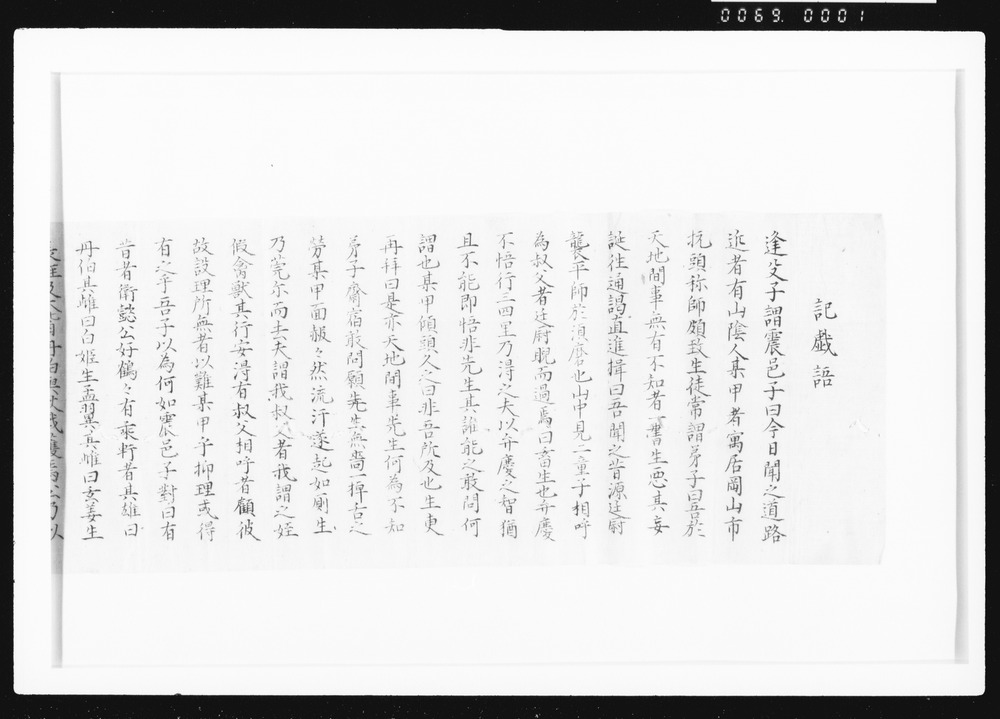 0069. 0001
記戯語
逢父子謂震邑子曰今日聞之道路
近者有山陰人某甲者寓居岡山市
抗頭称師頗致生徒常謂弟子曰吾於
天地間事無有不知者一書生悪其妄
誕往通謁直進揖曰吾聞之昔源廷尉
襲平師於須磨也山中見一童子相呼
為叔父者廷尉睨而過焉曰畜生也弁慶
不悟行三四里乃得之夫以弁慶之智猶
且不能即悟非先生其誰能之敢問何
謂也某甲傾頭久之曰非吾所及也生更
再拝曰是亦天地間事先生何為不知
弟子齋宿敢問願先生無嗇一掉舌之
労某甲面赧々然流汗遂起如厠生
乃莞尓而去夫謂我叔父者我謂之姪
仮禽獣其行安得有叔父相呼者顧彼
故設理所無者以難某甲乎抑理或得
有之乎吾子以為何如震邑子對曰有
昔者衛懿公好鶴々有乗軒者其雄曰
丹伯其雌曰白姫生孟翼其雌曰玄姜生